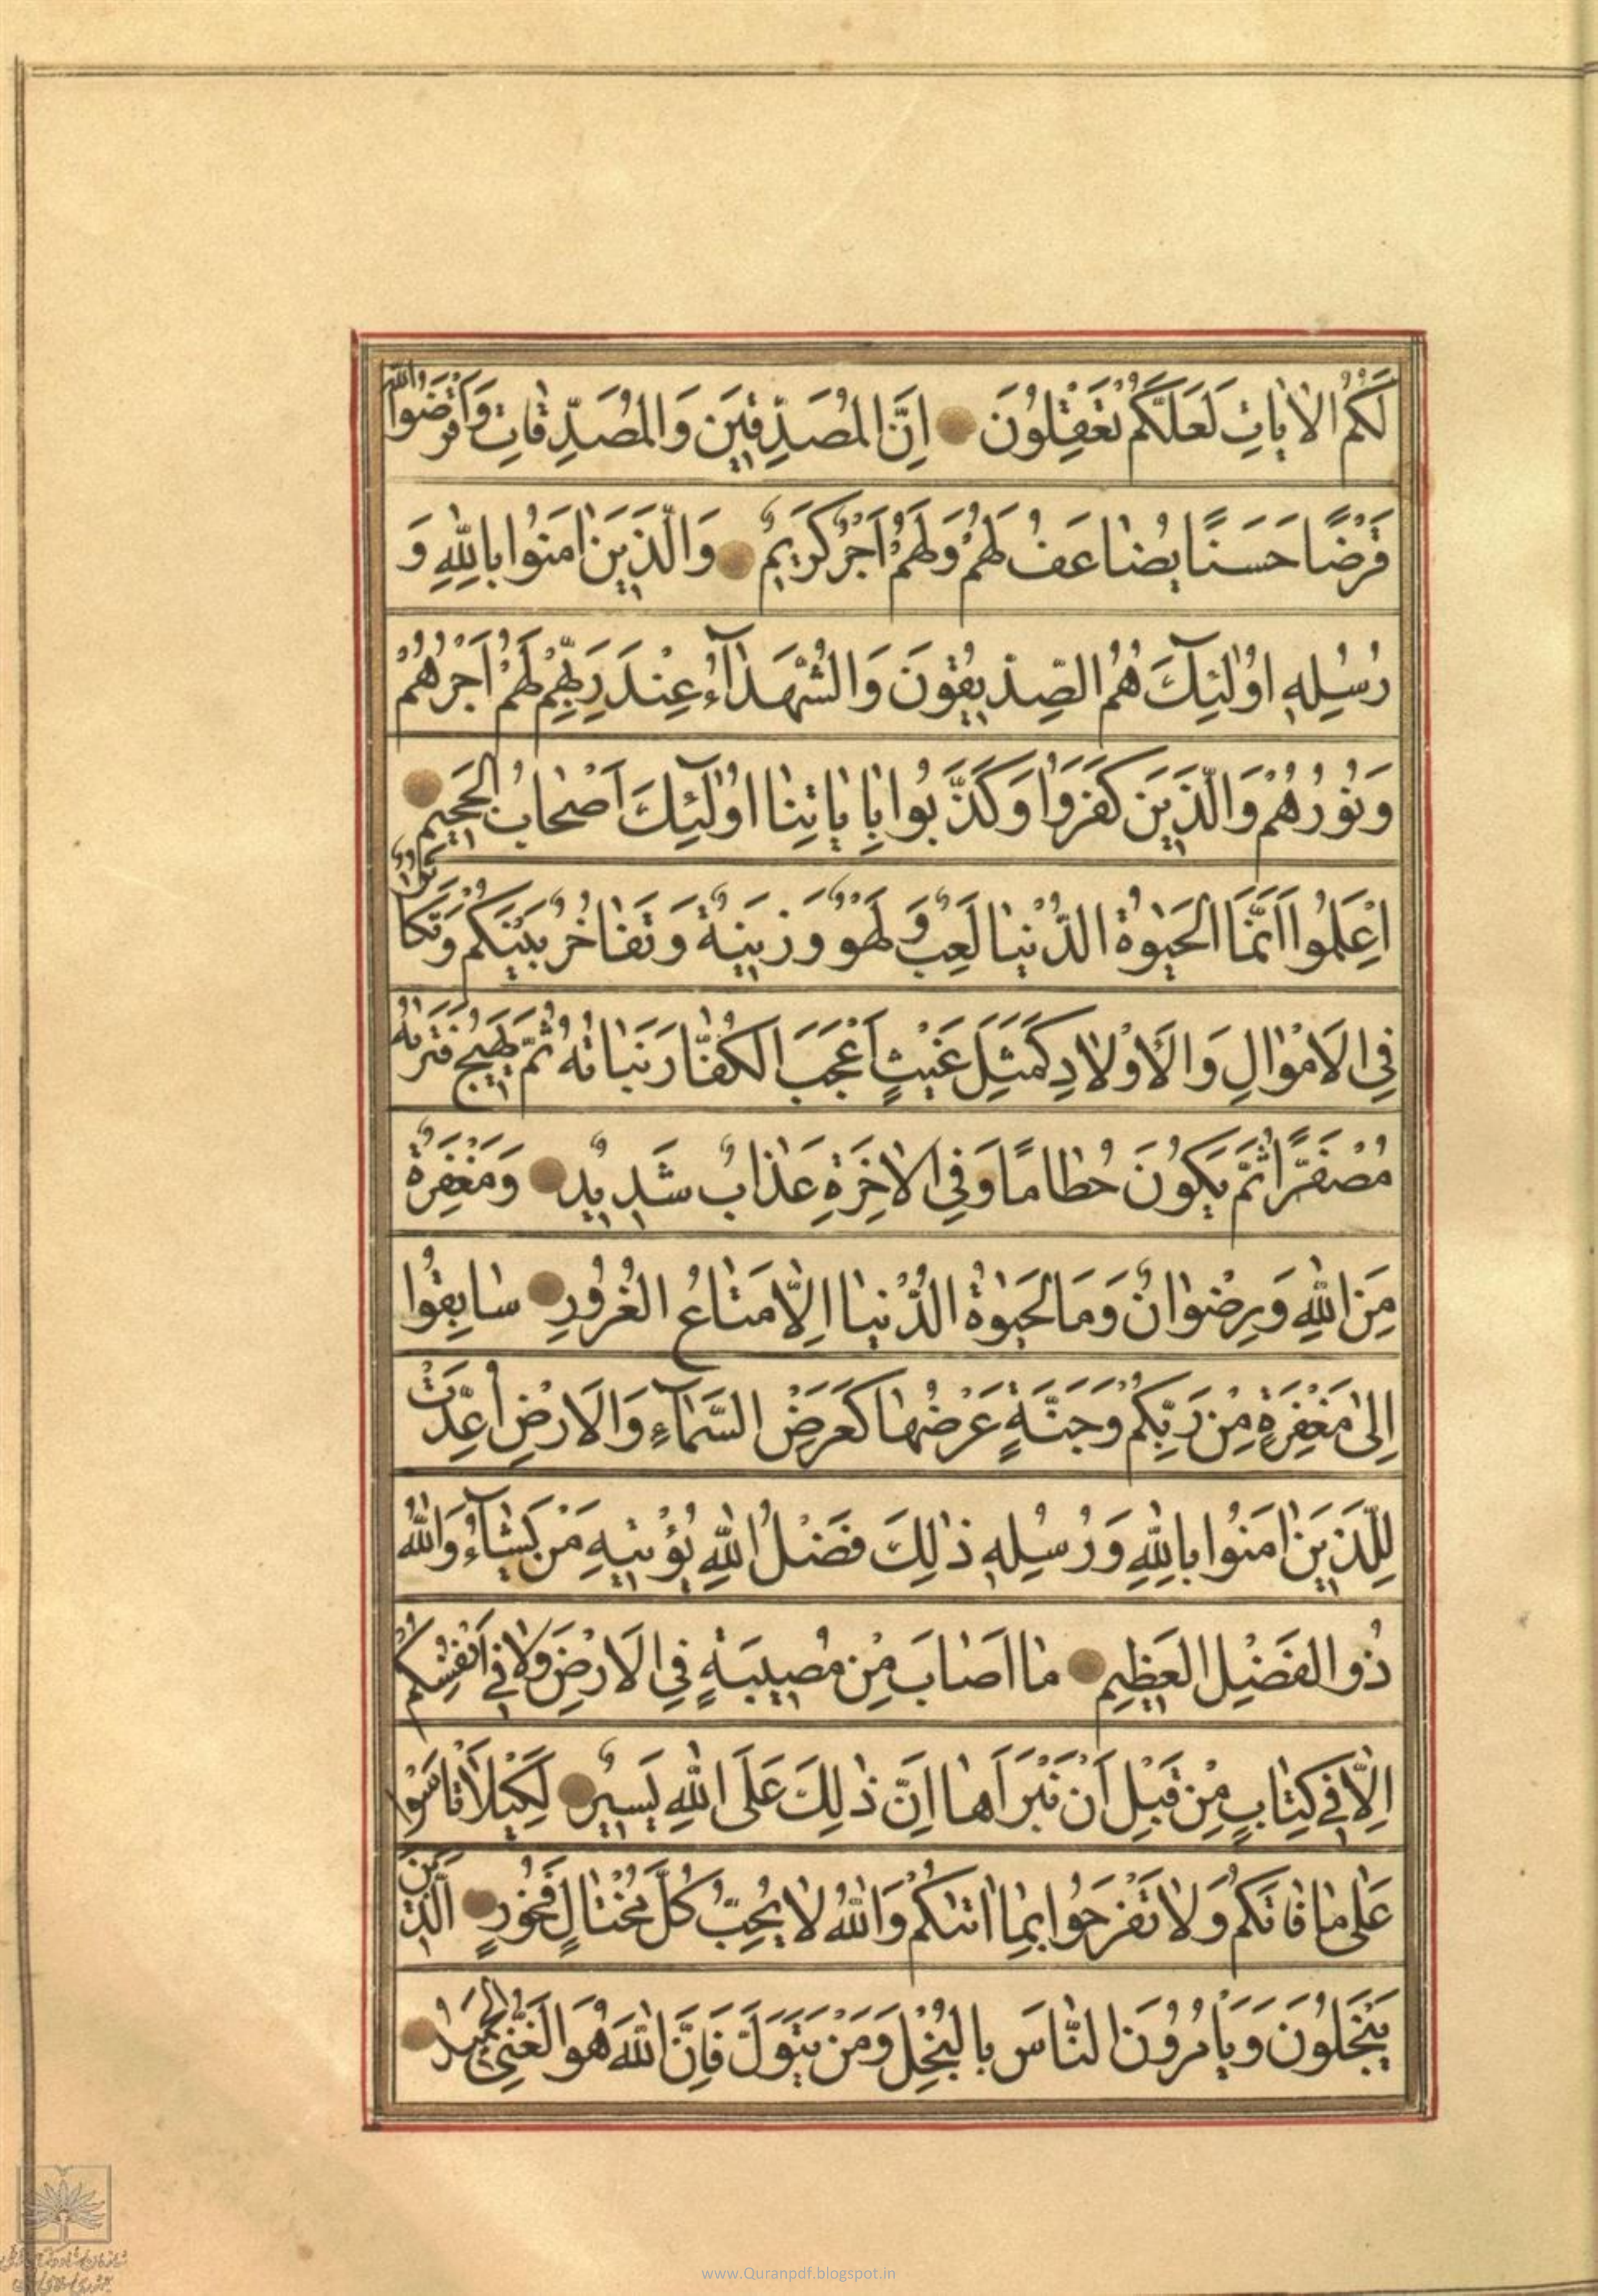 لَكُمُ الْاٰيٰاتِ لَعَلَّكُمْ تَعْقِلُونَ اِنَّ الْمُصَدِّقِينَ وَالْمُصَدِّقٰاتِ وَاَقْرَضُوا اللّٰهَ
قَرْضًا حَسَنًا يُضٰاعَفُ لَهُمْ وَلَهُمْ اَجْرٌ كَرِيمٌ وَالَّذِينَ اٰمَنُوا بِاللّٰهِ وَ
رُسُلِهِ اُولٰئِكَ هُمُ الصِّدِّيقُونَ وَالشُّهَدٰآءُ عِنْدَ رَبِّهِمْ لَهُمْ اَجْرُهُمْ
وَنُورُهُمْ وَالَّذِينَ كَفَرُوا وَكَذَّبُوا بِاٰيٰاتِنٰا اُولٰئِكَ اَصْحٰابُ الْجَحِيمِ
اِعْلَمُوا اَنَّمَا الْحَيٰوةُ الدُّنْيٰا لَعِبٌ وَلَهْوٌ وَزِينَةٌ وَتَفٰاخُرٌ بَيْنَكُمْ وَتَكٰاثُرٌ
فِي الْاَمْوٰالِ وَالْاَوْلٰادِ كَمَثَلِ غَيْثٍ اَعْجَبَ الْكُفّٰارَ نَبٰاتُهُ ثُمَّ يَهِيجُ فَتَرٰيهُ
مُصْفَرًّا ثُمَّ يَكُونُ حُطٰامًا وَفِي الْاٰخِرَةِ عَذٰابٌ شَدِيدٌ وَمَغْفِرَةٌ
مِنَ اللّٰهِ وَرِضْوٰانٌ وَمَا الْحَيٰوةُ الدُّنْيٰا اِلّٰا مَتٰاعُ الْغُرُورِ سٰابِقُوا
اِلىٰ مَغْفِرَةٍ مِنْ رَبِّكُمْ وَجَنَّةٍ عَرْضُهٰا كَعَرْضِ السَّمٰآءِ وَالْاَرْضِ اُعِدَّتْ
لِلَّذِينَ اٰمَنُوا بِاللّٰهِ وَرُسُلِهِ ذٰلِكَ فَضْلُ اللّٰهِ يُؤْتِيهِ مَنْ يَشٰآءُ وَاللّٰهُ
ذُو الْفَضْلِ الْعَظِيمِ مٰا اَصٰابَ مِنْ مُصِيبَةٍ فِي الْاَرْضِ وَلٰا فِي اَنْفُسِكُمْ
اِلّٰا فِي كِتٰابٍ مِنْ قَبْلِ اَنْ نَبْرَاَهٰا اِنَّ ذٰلِكَ عَلَى اللّٰهِ يَسِيرٌ لِكَيْلٰا تَاْسَوْا
عَلىٰ مٰا فٰاتَكُمْ وَلٰا تَفْرَحُوا بِمٰا اٰتٰيكُمْ وَاللّٰهُ لٰا يُحِبُّ كُلَّ مُخْتٰالٍ فَخُورٍ الَّذِينَ
يَبْخَلُونَ وَيَاْمُرُونَ النّٰاسَ بِالْبُخْلِ وَمَنْ يَتَوَلَّ فَاِنَّ اللّٰهَ هُوَ الْغَنِيُّ الْحَمِيدُ
www.Quranpdf.blogspot.in